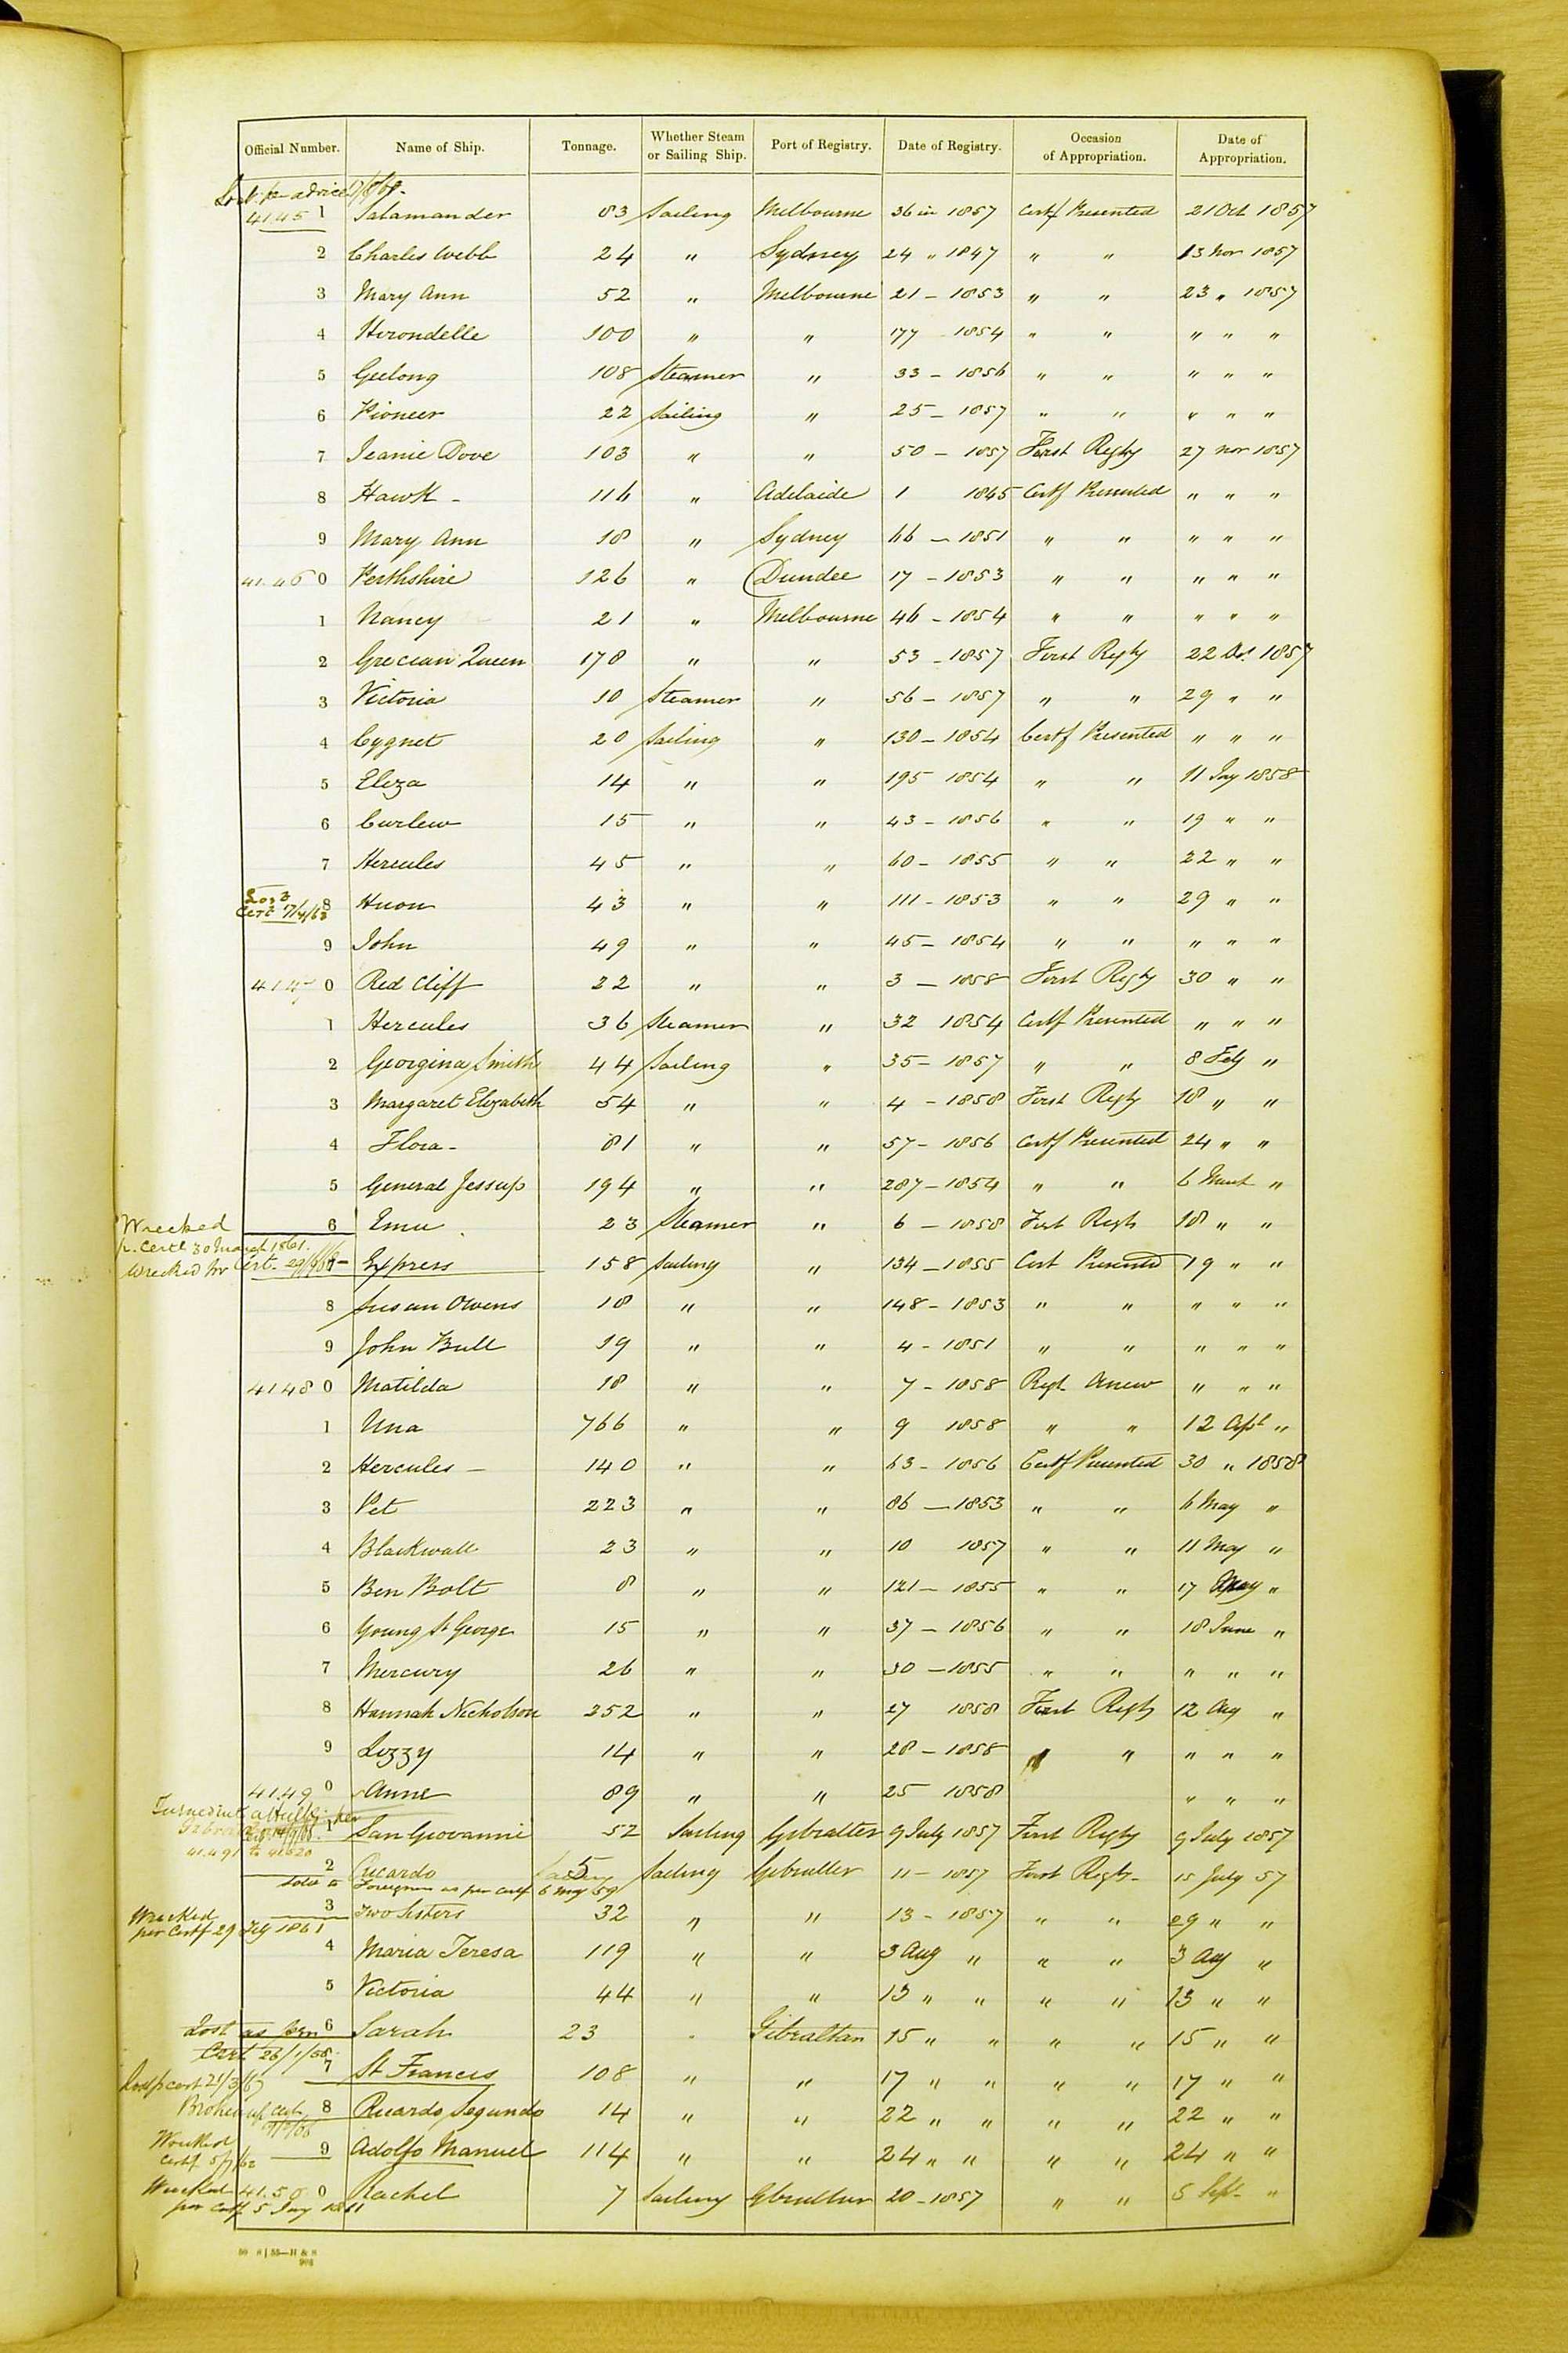 Official Number. Name of Ship. Tonnage. Whether Steam or Sailing Ship. Port of Registry. Date of Registry. Occasion of Appropriation. Date of Appropriation.
4145 1 Salamander 83 Sailing Melbourne 36 in 1857 Certf Presented 21 Oct 1857
2 Charles Webb 24 " Sydney 24 " 1847 " " 13 Nov 1857
3 Mary Ann 52 " Melbourne 21 - 1853 " " 23 " 1857
4 Hirondelle 100 " " 177 1854 " " " " "
5 Geelong 108 Steamer " 33 - 1856 " " " " "
6 Pioneer 22 Sailing " 25 - 1857 " " " " "
7 Jeanie Dove 103 " " 50 - 1857 First Regty 27 Nov 1857
8 Hawk - 116 " Adelaide 1 1845 Certf Presented " " "
9 Mary Ann 18 " Sydney 66 - 1851 " " " " "
41.46 0 Perthshire 126 " Dundee 17 - 1853 " " " " "
1 Nancy 21 " Melbourne 46 - 1854 " " " " "
2 Grecian Queen 178 " " 53 - 1857 First Regty 22 1857
3 Victoria 10 Steamer " 56 - 1857 " " 29 " "
4 Cygnet 20 Sailing " 130 - 1854 Certf Presented " " "
5 Eliza 14 " " 195 1854 " " 11 Jny 1858
6 Curlew 15 " " 43 - 1856 " " 19 " "
7 Hercules 45 " " 60 - 1855 " " 22 " "
8 Huon 43 " " 111 - 1853 " " 29 " "
9 John 49 " " 45 - 1854 " " " " "
4147 0 Red Cliff 22 " " 3 - 1858 First Regty 30 " "
1 Hercules 36 Steamer " 32 1854 Certf Presented " " "
2 Georgina Smith 44 Sailing " 35 - 1857 " " 8 Feby "
3 Margaret Elizabeth 54 " " 4 - 1858 First Regty 18 " "
4 Flora - 81 " " 57 - 1856 Certf Presented 24 " "
5 General Jessup 194 " " 287 - 1854 " " 6 March "
Wrecked 6 Emu 23 Steamer " 6 - 1858 First Regty 18 " "
p. Certe 30 March 1861.
Wrecked pr Cert. Express 158 Sailing " 134 - 1855 Cert Presented 19 " "
8 Susan Owens 18 " " 148 - 1853 " " " " "
9 John Bull 19 " " 4 - 1851 " " " " "
4148 0 Matilda 18 " " 7 - 1858 Regt Anew " " "
1 Una 766 " " 9 1858 " " 12 Apl "
2 Hercules - 140 " " 63 - 1856 Certf Presented 30 " 1858
3 Pet 223 " " 86 - 1853 " " 6 May "
4 Blackwall 23 " " 10 1857 " " 11 May "
5 Ben Bolt 8 " " 121 - 1855 " " 17 May "
6 Young St George 15 " " 37 - 1856 " " 18 June "
7 Mercury 26 " " 30 - 1855 " " " " "
8 Hannah Nicholson 252 " " 27 1858 First Regty 12 Aug "
9 Lizzy 14 " " 28 - 1858 " " " " "
4149 0 Anne 89 " " 25 1858 " " "
Turned into a Hulk per
1 San Giovanni 52 Sailing Gibralter 9 July 1857 First Regty 9 July 1857
41.491 to 41520
2 Ricardo 5 Sailing Gibralter 11 - 1857 First Regty - 15 July 57
Sold to Foreigners as per certf 6 May 59
3 Two Sisters 32 " " 13 - 1857 " " 29 " "
Wrecked per Certf 29 Feby 1861
4 Maria Teresa 119 " " 3 Aug " " " 3 Aug "
5 Victoria 44 " " 13 " " " " 13 " "
Lost as per 6 Sarah 23 " Gibraltar 15 " " " " 15 " "
Cert 26/1/58.
7 St Francis 108 " " 17 " " " " 17 " "
Lost p cert 21/3/67
Broken up Cert. 8 Ricardo Segundo 14 " " 22 " " " " 22 " "
Wrecked 9 Adolfo Manuel 114 " " 24 " " " " 24 " "
Certf 5/7/62
Wrecked 41.50 0 Rachel 7 Sailing Gibralter 20 - 1857 " " 5 Sept. "
per Certf 5 Jny 1861